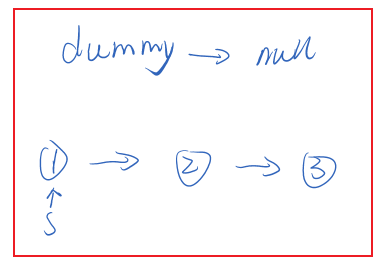 dummy → null
1 → 2 → 3
↑
S